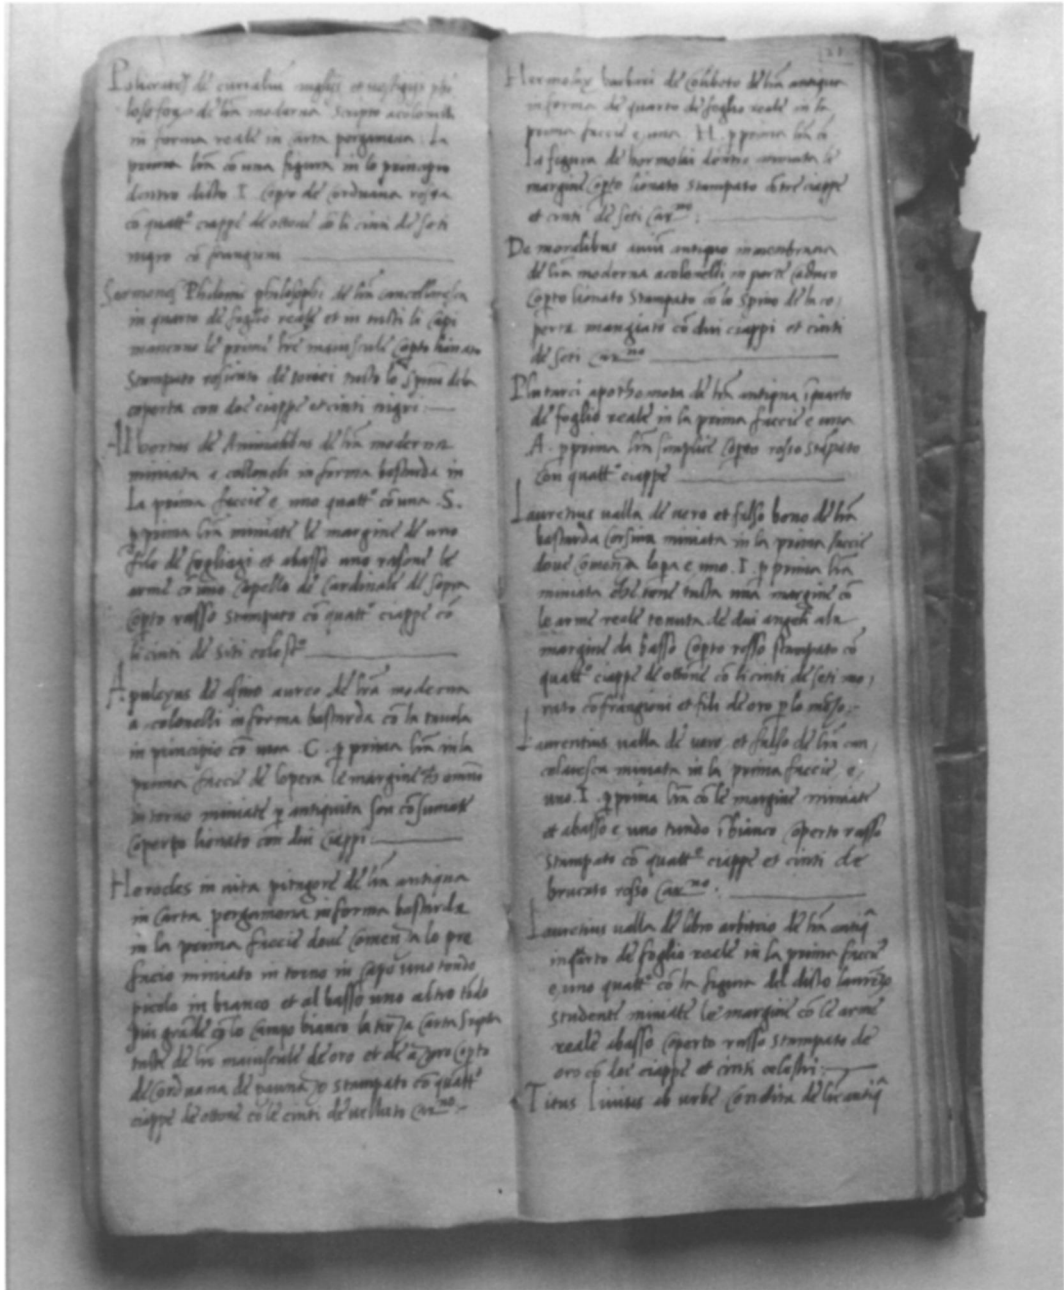 Policrates de curialiu nugijs et uestigijs phi
losofoȝ de lr̃a moderna scripto acolonelli
in forma reale in carta pergamena. La
prima lr̃a cõ una figura in lo principio
dentro dicto .I. copto de corduana rossa
cõ quattº ciappe de ottone cõ li cinti de seti
nigro cõ frangiuni
Sermones Philelfi philosophi de lr̃a cancellaresca
in quarto de foglio reale et in tucti li capi
mancano le prime lr̃e maiuscule copto lionato
stampato tucto lo spino dela
coperta con doe ciappe et cinti nigri
Albertus de Animalibus de lr̃a moderna
miniata a collonelli in forma bastarda in
la prima faccie e uno quattº cõ una .S.
ꝑ prima lr̃a miniate le margine de uno
filo de fogliagi et abasso uno le
arme cõ uno Capello de Cardinale de sopra
copto rosso stampato cõ quattº ciappe cõ
li cinti de siti celestº
Apuleyus de asino aureo de lr̃a moderna
a colonelli in forma bastarda cõ la tauola
in principio cõ una .C. ꝑ prima lr̃a in la
prima faccie de lopera le margine
in torno miniate ꝑ antiquita son cõsumate
coperto lionato con dui ciappi
Herocles in uita pitagore de lr̃a antiqua
in carta pergamena in forma bastarda
in la prima faccie doue comenza lo pre
facio miniato in torno in capo uno tondo
picolo in bianco et al basso uno altro tõdo
piu grãde cõ lo campo bianco la terza carta scripta
tucta de lr̃e maiuscule de oro et de azuro copto
de corduana de stampato cõ quattº
ciappe de ottone cõ le cinti de uellutο carᵐº
21
Hermolay barbari de celibato de lr̃a antiqua
in forma de quarto de foglio reale in la
prima faccie e una .H. ꝑ prima lr̃a cõ
la figura de hormolai dentro miniata le
margine copto lionato stampato cõ tre ciappe
et cinti de seti carᵐº
De moralibus antiquo in menbrana
de lr̃a moderna acolonelli in parte caduco
copto lionato stampato cõ lo spino de la co,
perta mangiato cõ dui ciappi et cinti
de seti carᵐº
Plutarci apothemata de lr̃a antiqua ĩ quarto
de foglio reale in la prima faccie e una
.A. ꝑ prima lr̃a simplice copto rosso stãpato
con quattº ciappe
Laurentius ualla de uero et falso bono de lr̃a
bastarda corsiua miniata in la prima faccie
doue comenza lopa e uno .I. ꝑ prima lr̃a
miniata che tene tucta una margine cõ
le arme reale tenuta de dui angeli ala
margine da basso copto rosso stampato cõ
quattº ciappe de ottone cõ li cinti de seti mo,
rato cõ frangioni et fili de oro ꝑ lo mezo
Laurentius ualla de uero et falso de lr̃a can,
celaresca miniata in la prima faccie e,
uno .I. ꝑ prima lr̃a cõ le margine miniate
et abasso e uno tundo ĩ bianco coperto rosso
stampato cõ quattº ciappe et cinti de
brucato rosso carᵐº.
Laurentius ualla de libro arbitrio de lr̃a antiq̃
in q̃rto de foglio reale in la prima faccie
e uno quattº cõ la figura del dicto laurẽzo
studente miniate le margine cõ le arme
reale abasso coperto rosso stampato de
oro cõ doe ciappe et cinti celestri
Titus liuius ab urbe condita de lr̃a antiq̃